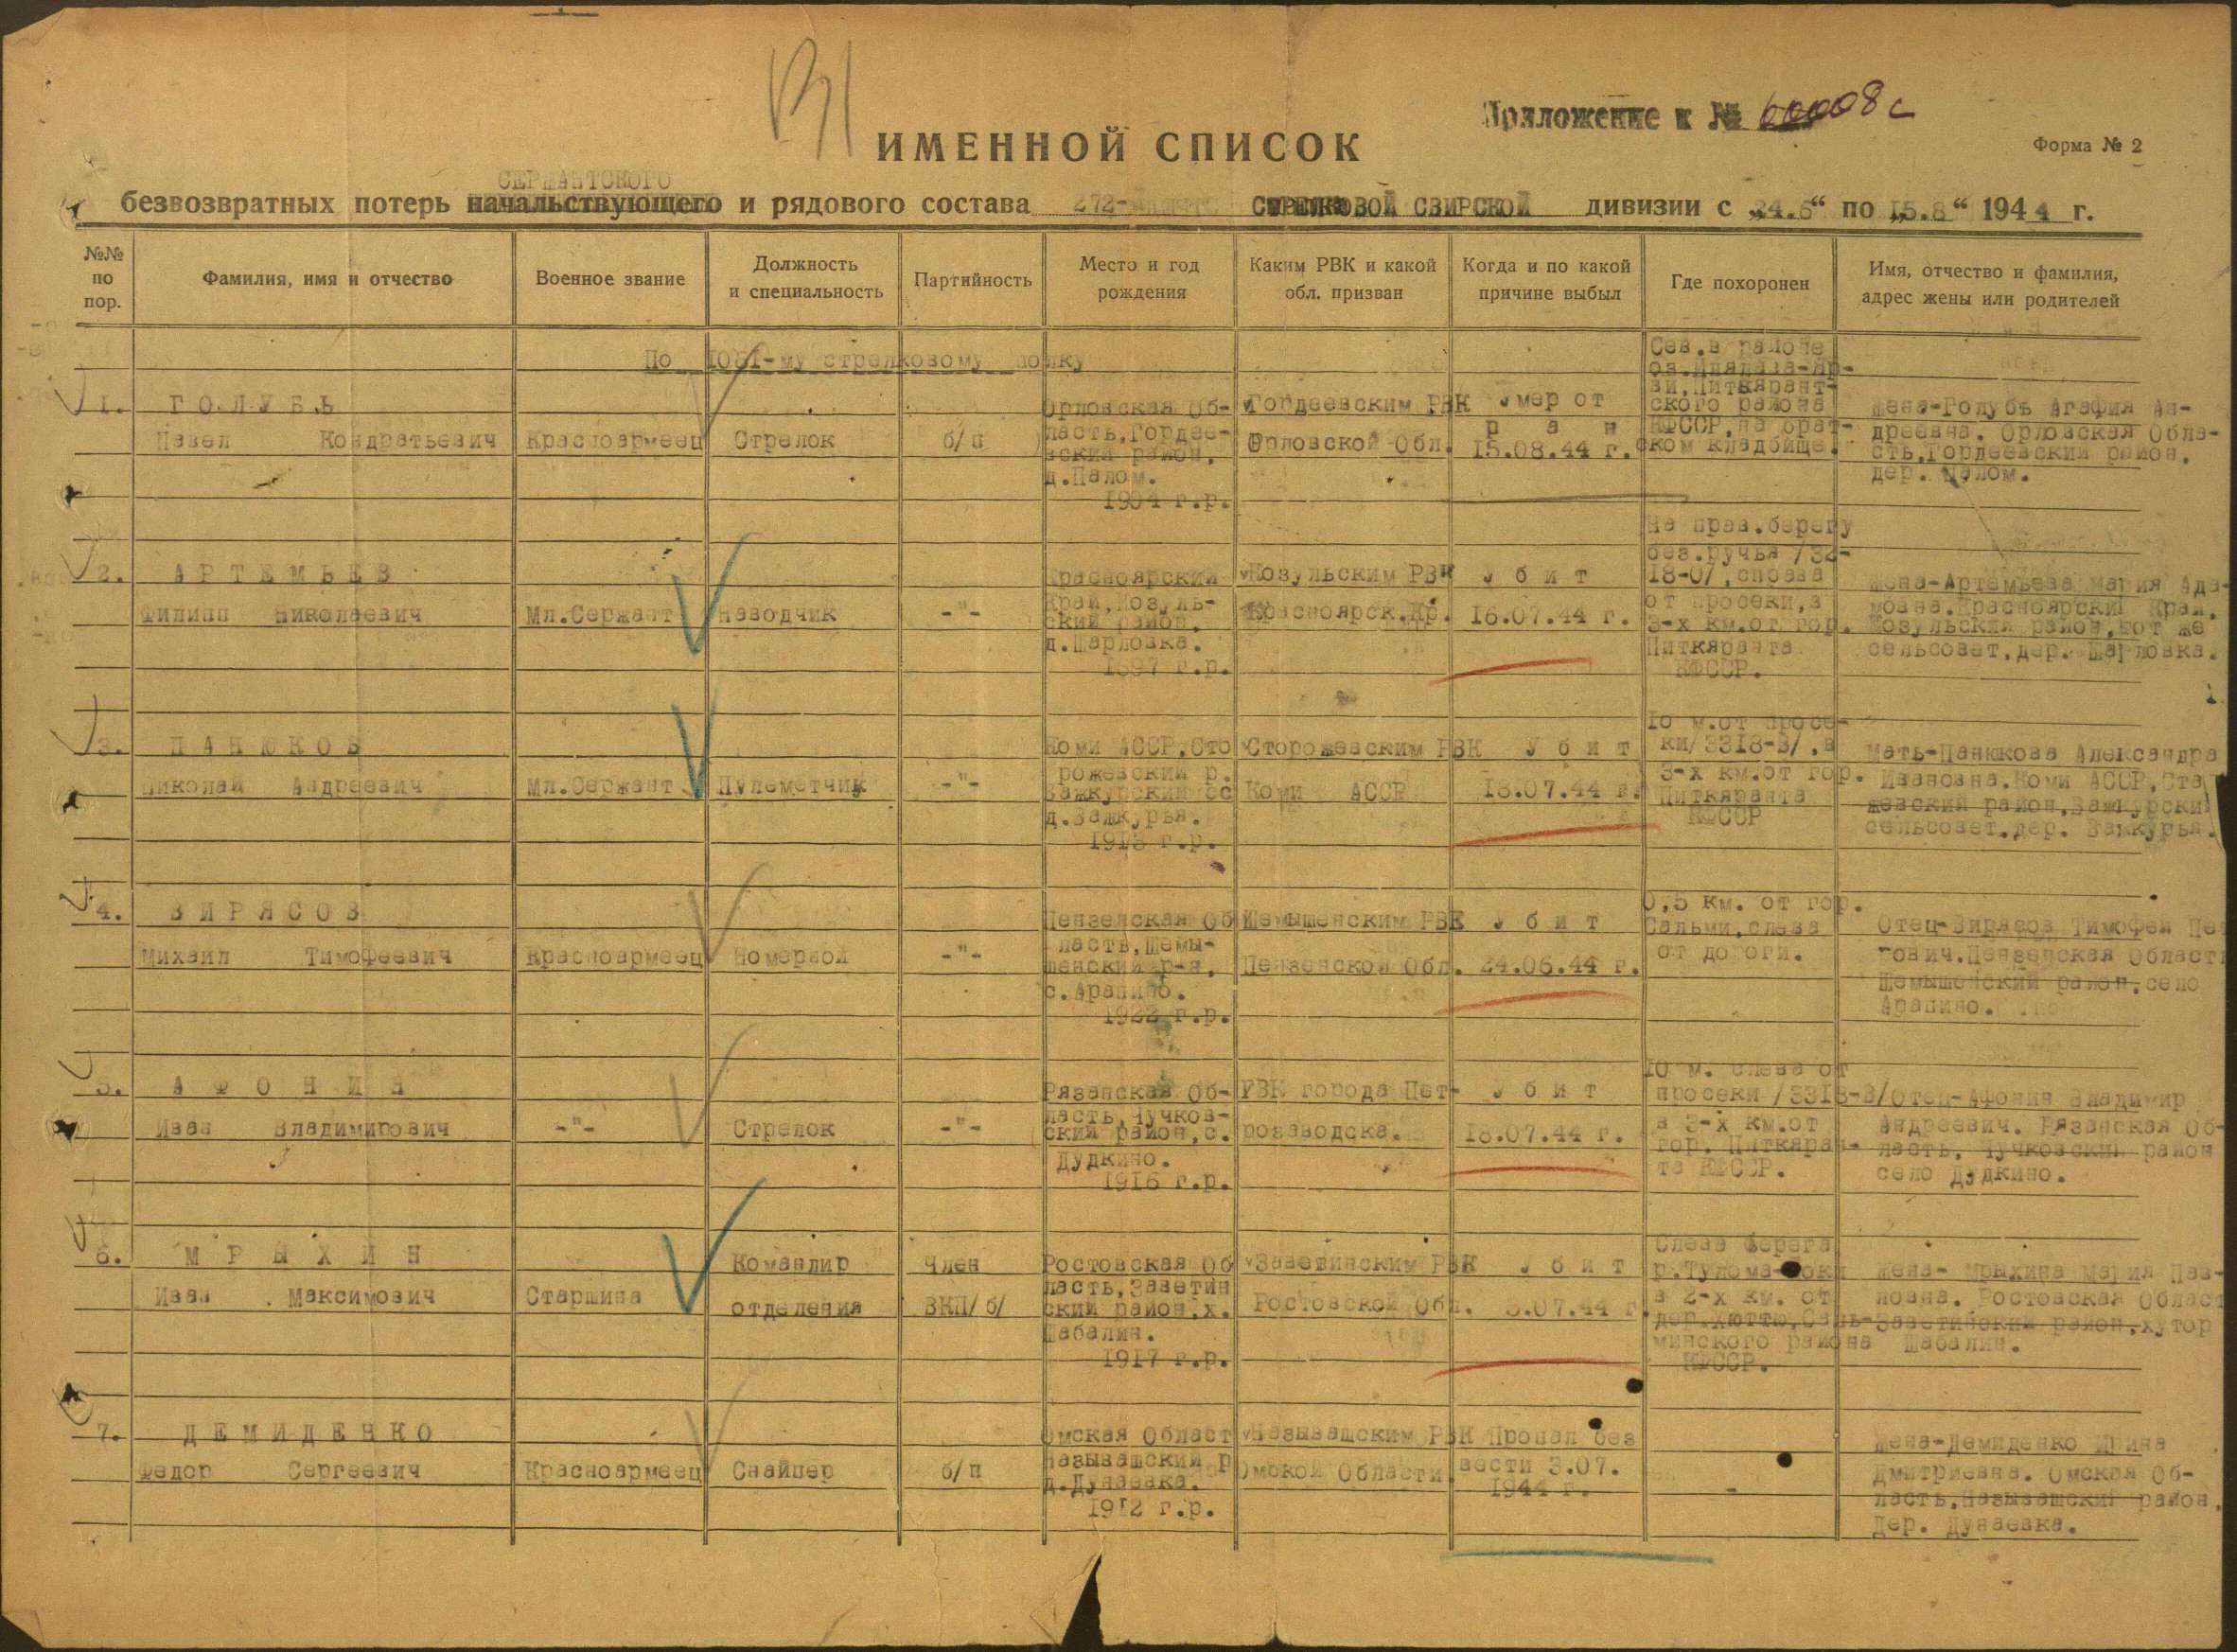 Приложение к № 60008с
ИМЕННОЙ СПИСОК
Форма № 2
СЕРЖАНТСКОГО
безвозвратных потерь начальствующего и рядового состава 272- СТРЕЛКОВОЙ СВИРСКОЙ дивизии с „24.6“ по „15.8“ 1944 г.
№№ по пор.
Фамилия, имя и отчество
Военное звание
Должность и специальность
Партийность
Место и год рождения
Каким РВК и какой обл. призван
Когда и по какой причине выбыл
Где похоронен
Имя, отчество и фамилия, адрес жены или родителей
По 1061-му стрелковому полку
1.
ГОЛУБЬ
Павел Кондратьевич
Красноармеец
Стрелок
б/п
Орловская Об-
ласть,Гордее-
вский район,
д.Палом.
1904 г.р.
Гордеевским РВК
Орловской Обл.
Умер от
ран
15.08.44 г.
Сев.в районе
оз.
ви,Питкярант-
ского района
КФССР,на брат-
ском кладбище.
Жена-Голубь Агафия Ан-
дреевна. Орловская Обла-
сть,Гордеевский район,
дер. Палом.
2.
АРТЕМЬЕВ
Филипп Николаевич
Мл.Сержант
Наводчик
-"-
Красноярский
Край,Козуль-
ский район,
д.Шарловка.
1897 г.р.
Козульским РВК
Красноярск.Кр.
Убит
16.07.44 г.
На прав.берегу
без.ручья /32-
18-0/,справа
от просеки,в
3-х км.от гор.
Питкяранта
КФССР.
Жена-Артемьева Мария Ада-
мовна.Красноярский Край,
Козульский район,тот же
сельсовет,дер. Шарловка.
3.
ПАНЮКОВ
Николай Андреевич
Мл.Сержант
Пулеметчик
-"-
Коми АССР,Сто
рожевский р.
Важкурский сс
д.Важкурья.
1913 г.р.
Сторожевским РВК
Коми АССР
Убит
13.07.44 г.
10 м.от просе-
ки/3318-В/,в
3-х км.от гор.
Питкяранта
КФССР
Мать-Панюкова Александра
Ивановна.Коми АССР,Сто
жевский район,Важкурский
сельсовет,дер. Важкурья.
4.
ВИРЯСОВ
Михаил Тимофеевич
Красноармеец
Номерной
-"-
Пензенская Об
ласть,Шемы-
шенский р-н,
с.Арапино.
1922 г.р.
Шемышенским РВК
Пензенской Обл.
Убит
24.06.44 г.
0,5 км. от гор.
Сальми,слева
от дороги.
Отец-Вирясов Тимофей Пет
рович.Пензенская Область
Шемышенский район,село
Арапино.
5.
АФОНИН
Иван Владимирович
-"-
Стрелок
-"-
Рязанская Об-
ласть,Чучков-
ский район,с.
Дудкино.
1916 г.р.
РВК города Пет-
розаводска.
Убит
13.07.44 г.
10 м. слева от
просеки/3318-В/
в 3-х км.от
гор. Питкяран-
та КФССР.
Отец-Афонин Владимир
Андреевич. Рязанская Об-
ласть, Чучковский район
село Дудкино.
6.
МРЫХИН
Иван Максимович
Старшина
Командир
отделения
Член
ВКП/б/
Ростовская Об
ласть,Заветин
ский район,х.
Шабалин.
1917 г.р.
Заветинским РВК
Ростовской Обл.
Убит
3.07.44 г.
Слева берега
р.Тулома-Йоки
в 2-х км. от
дер. ,Саль-
минского района
КФССР.
Жена- Мрыхина Мария Пав-
ловна. Ростовская Област
Заветинский район,хутор
Шабалин.
7.
ДЕМИДЕНКО
Федор Сергеевич
Красноармеец
Снайпер
б/п
Омская Област
Называевский р
д.Дунаевка.
1912 г.р.
Называевским РВК
Омской Области
Пропал без
вести 3.07.
1944 г.
-
Жена-Демиденко Ирина
Дмитриевна. Омская Об-
ласть,Называевский район,
дер. Дунаевка.